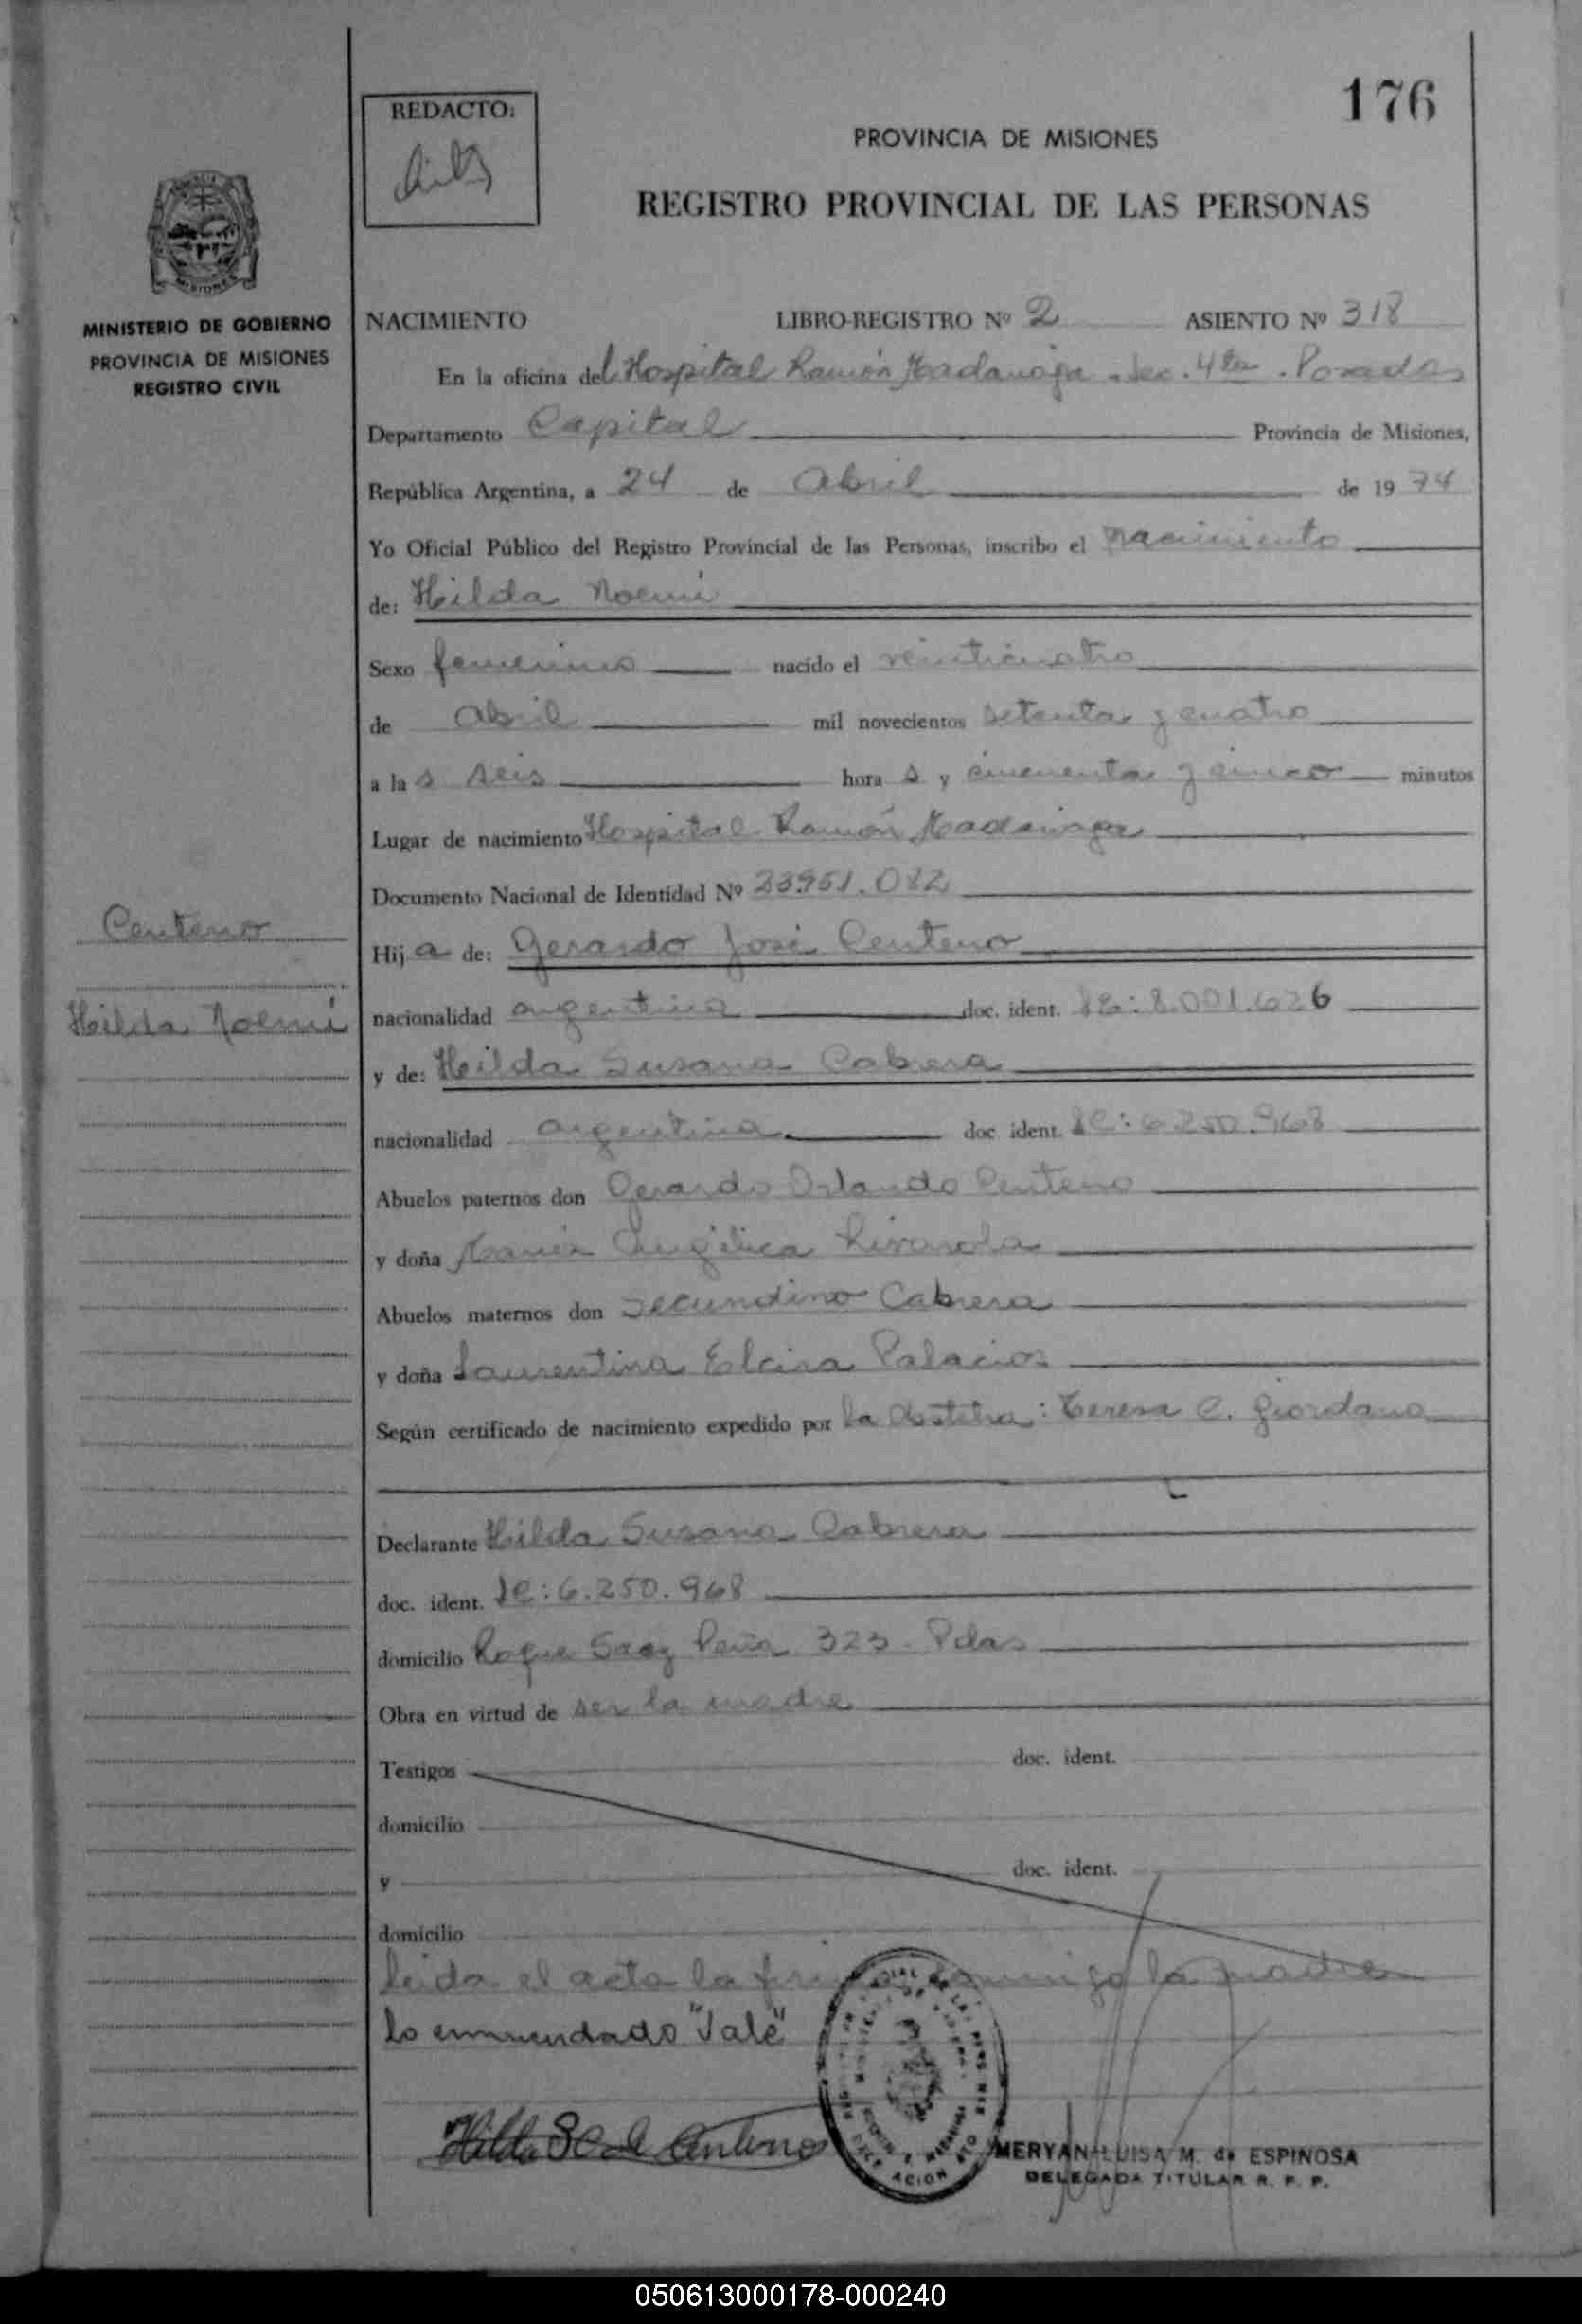 176
REDACTO:
PROVINCIA DE MISIONES
REGISTRO PROVINCIAL DE LAS PERSONAS
MISIONES
MINISTERIO DE GOBIERNO
PROVINCIA DE MISIONES
REGISTRO CIVIL
NACIMIENTO LIBRO-REGISTRO Nº 2 ASIENTO Nº 318
En la oficina del Hospital Ramón Madariaga - Sec. 4ta - Posadas
Departamento Capital Provincia de Misiones,
República Argentina, a 24 de Abril de 1974
Yo Oficial Público del Registro Provincial de las Personas, inscribo el nacimiento
de: Hilda Noemí
Sexo femenino nacido el veinticuatro
de Abril mil novecientos setenta y cuatro
a las seis horas y cincuenta y cinco minutos
Lugar de nacimiento Hospital Ramón Madariaga
Documento Nacional de Identidad Nº 23.951.082
Centeno
Hilda Noemí
Hija de: Gerardo José Centeno
nacionalidad argentina doc. ident. LE: 8.001.626
y de: Hilda Susana Cabrera
nacionalidad argentina doc. ident. LC: 6.250.968
Abuelos paternos don Gerardo Orlando Centeno
y doña María Angélica Rivarola
Abuelos maternos don Secundino Cabrera
y doña Laurentina Elcira Palacios
Según certificado de nacimiento expedido por la Obstetra: Teresa C. Giordano
Declarante Hilda Susana Cabrera
doc. ident. LC: 6.250.968
domicilio Roque Saez Peña 323 - Pdas
Obra en virtud de ser la madre
Testigos doc. ident.
domicilio
y doc. ident.
domicilio
Leida el acta la firma conmigo la madre
lo enmendado "Vale"
Hilda S C de Centeno
MERYAN LUISA M. de ESPINOSA
DELEGADA TITULAR R. P. P.
050613000178-000240